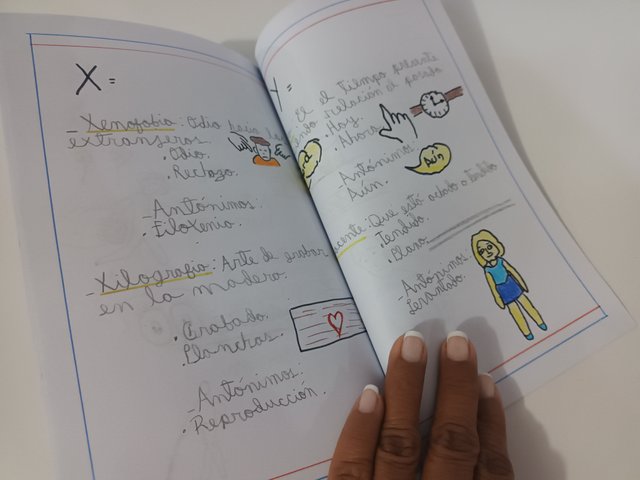 X =
- Xenofobia: Odio hacia los
extranjeros.
. Odio.
. Rechazo.
- Antónimos:
. Filoxenia.
- Xilografía: Arte de grabar
en la madera.
. Grabado.
. Planchas.
- Antónimos:
. Reproducción.
Y =
Es el tiempo presente
relación al pasado
. Hoy.
. Ahora.
- Antónimos:
Aún.
Aún
Que está
tendido.
. Plano.
- Antónimos:
Levantado.